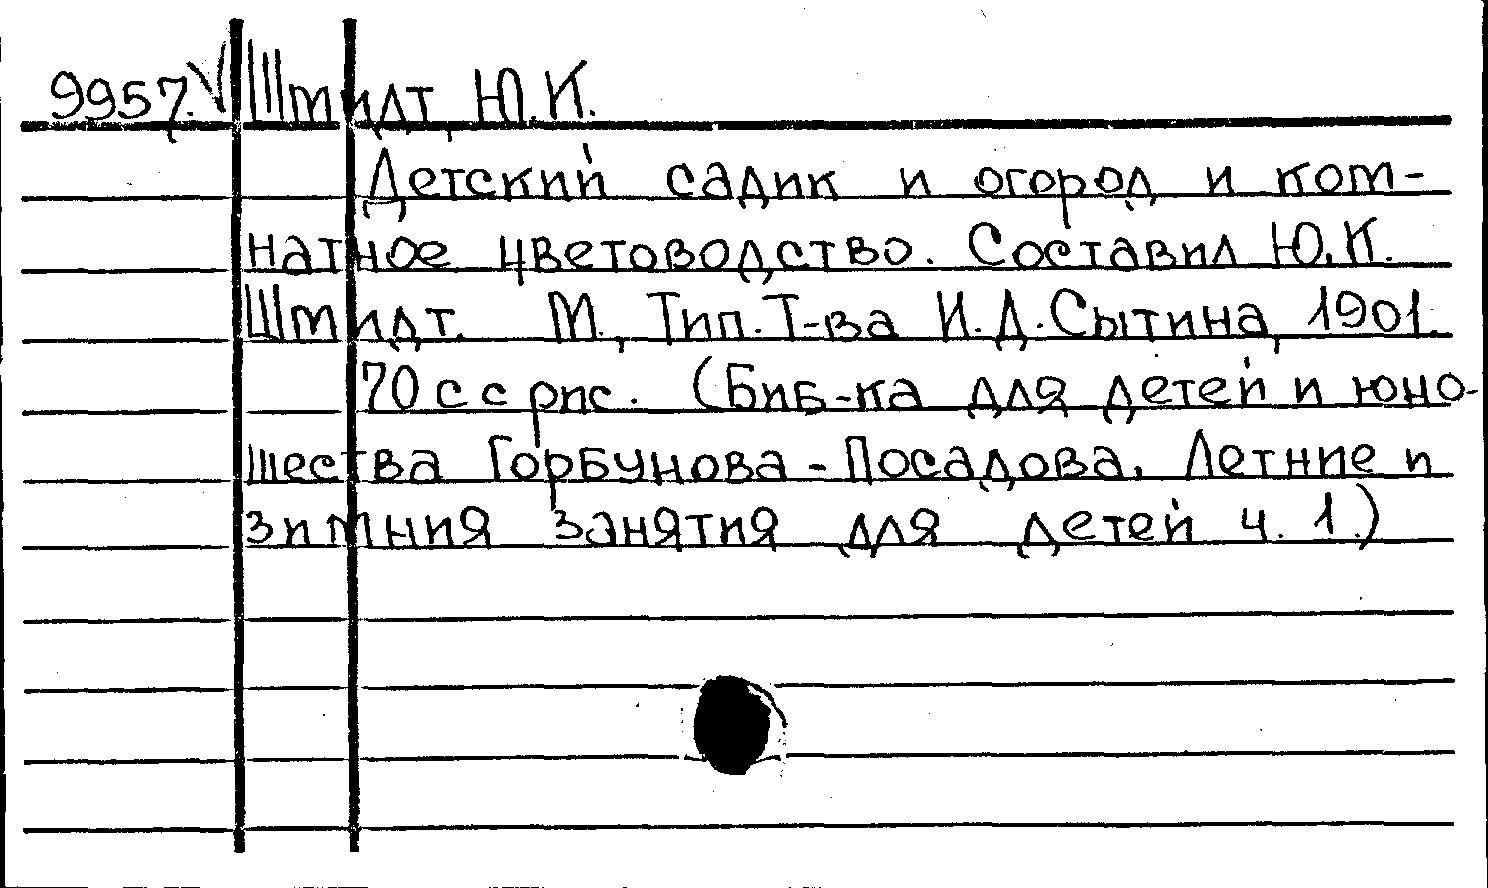 9957. V Штидт, Ю.К.
Детский садик и огород и ком-
натное цветоводство. Составил Ю.К.
Штидт. М., Тип. Т-ва И.Д. Сытина, 1901.
70 с с рис. (Биб-ка для детей и юно-
шества Горбунова-Посадова. Летние и
зимния занятия для детей ч. 1.)